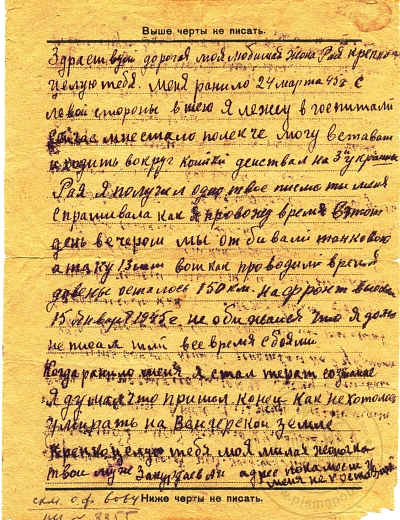 Выше черты не писать.
Здраствуй дорогая моя любимая жена Рая крепко
целую тебя. меня ранило 24 марта 45г с
левой стороны в шею я лежу в госпитали
сейчас мне стало полекче могу встават
и ходить вокруг койки действвал на 3м украин
Рая я получил одно твое писмо ты меня
спрашивала как я провожу время Этот
день вечером мы отбивали танковою
атаку 13 вот как проводили время
до вены осталось 150 км. на фронт
15 января 1945г не обижайся что я долго
не писал шли все время с боями
Когда ранило меня я стал терят сознание
Я думал что пришол конец как не хотолос
умирать на Венгерской земле
Крепко целую тебя моя милая
твой муж адрес пока мест
меня не к
скм. о.ф. вову
Ниже черты не писать.